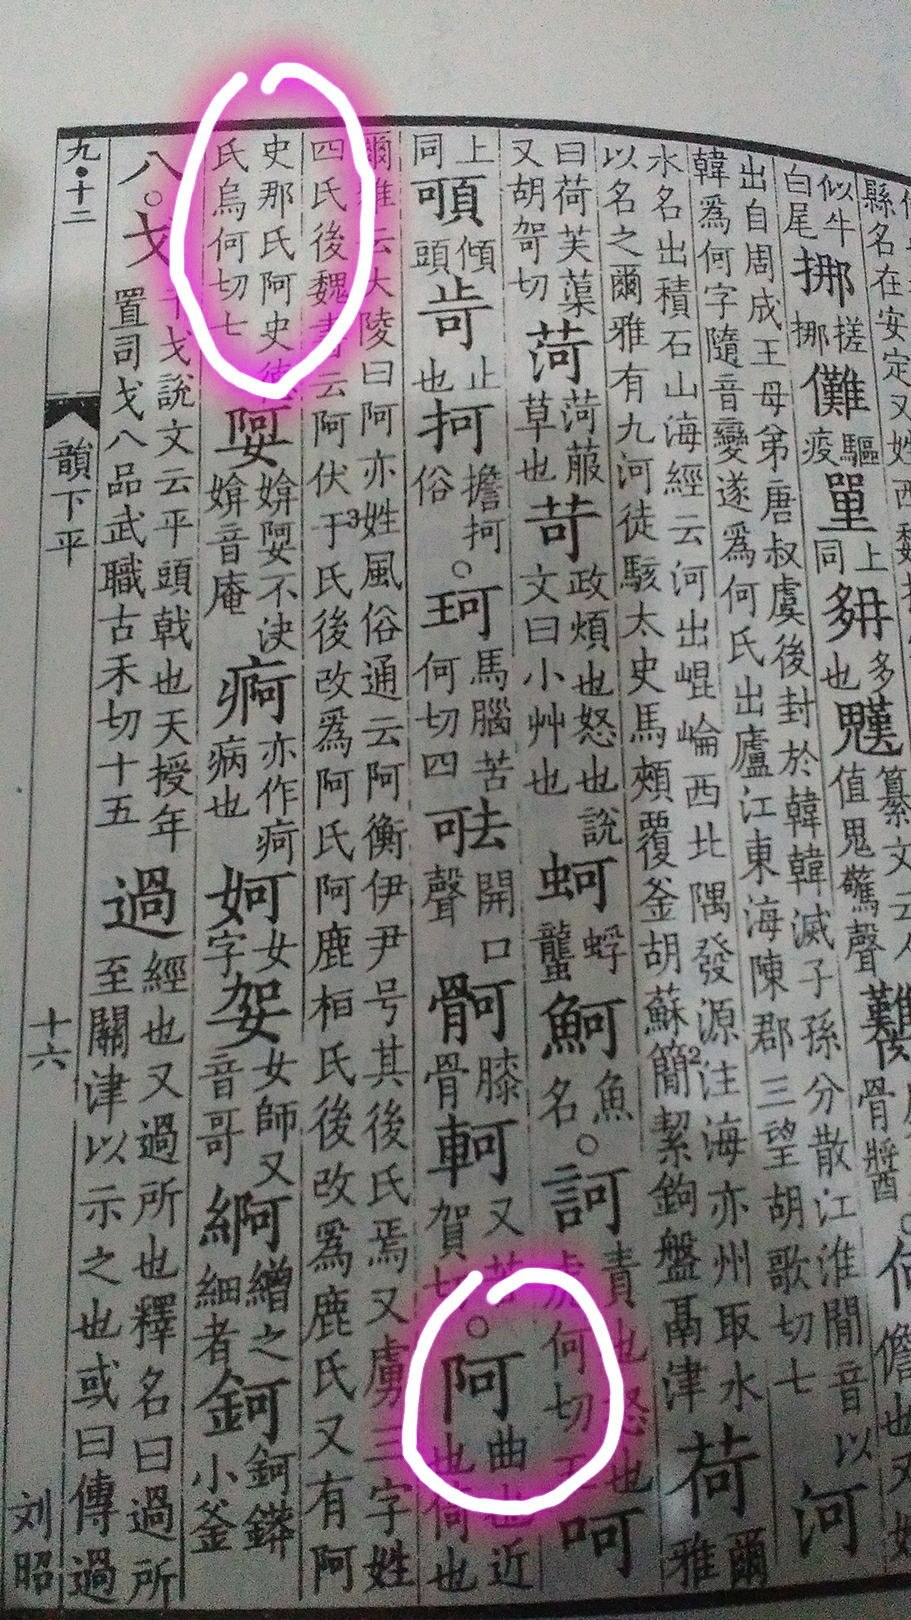 縣名在安定又姓西魏
似牛白尾挪搓挪儺驅疫單上同多也值鬼驚聲骨醬何
出自周成王母弟唐叔虞後封於韓韓滅子孫分散江淮間音以韓爲何字隨音變遂爲何氏出廬江東海陳郡三望胡歌切七河
水名出積石山海經云河出崐崘西北隅發源注海亦州取水以名之爾雅有九河徒駭太史馬頰覆釜胡蘇簡2絜鉤盤鬲津荷爾雅
曰荷芙蕖又胡哿切菏菏菔草也苛政煩也怒也說文曰小艸也蚵蜉蠪魺魚名○訶責也怒也虎何切五呵
上同傾頭止也抲擔抲俗○珂馬腦苦何切四開口聲膝骨軻又苦賀切○阿曲也近也倚也
爾雅云大陵曰阿亦姓風俗通云阿衡伊尹号其後氏焉又虜三字姓四氏後魏書云阿伏于3氏後改爲阿氏阿鹿桓氏後改爲鹿氏又有阿
史那氏阿史德氏烏何切七娿媕娿不決媕音庵痾亦作疴病也妸女字妿女師又音哥繒之細者鈳鈳䥈小釜
八○戈干戈說文云平頭戟也天授年置司戈八品武職古禾切十五過經也又過所也釋名曰過所至關津以示之也或曰傳過
九·十二
韻下平
十六
刘昭